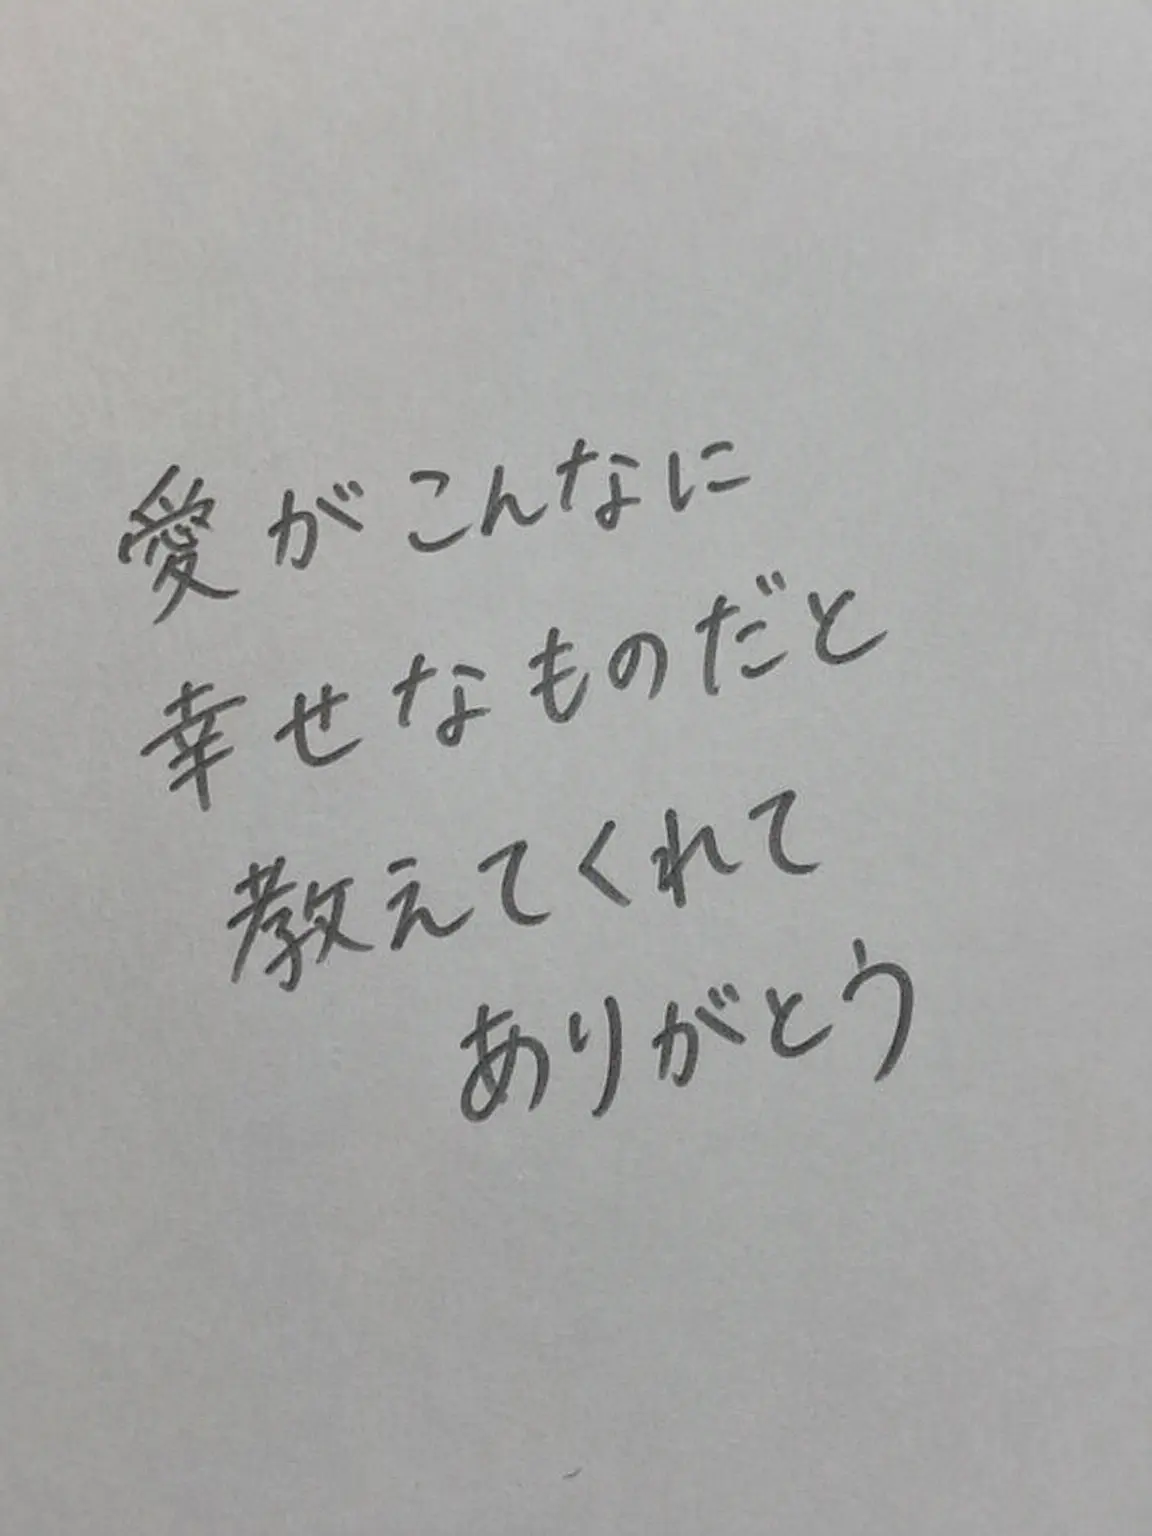 愛がこんなに
幸せなものだと
教えてくれて
ありがとう